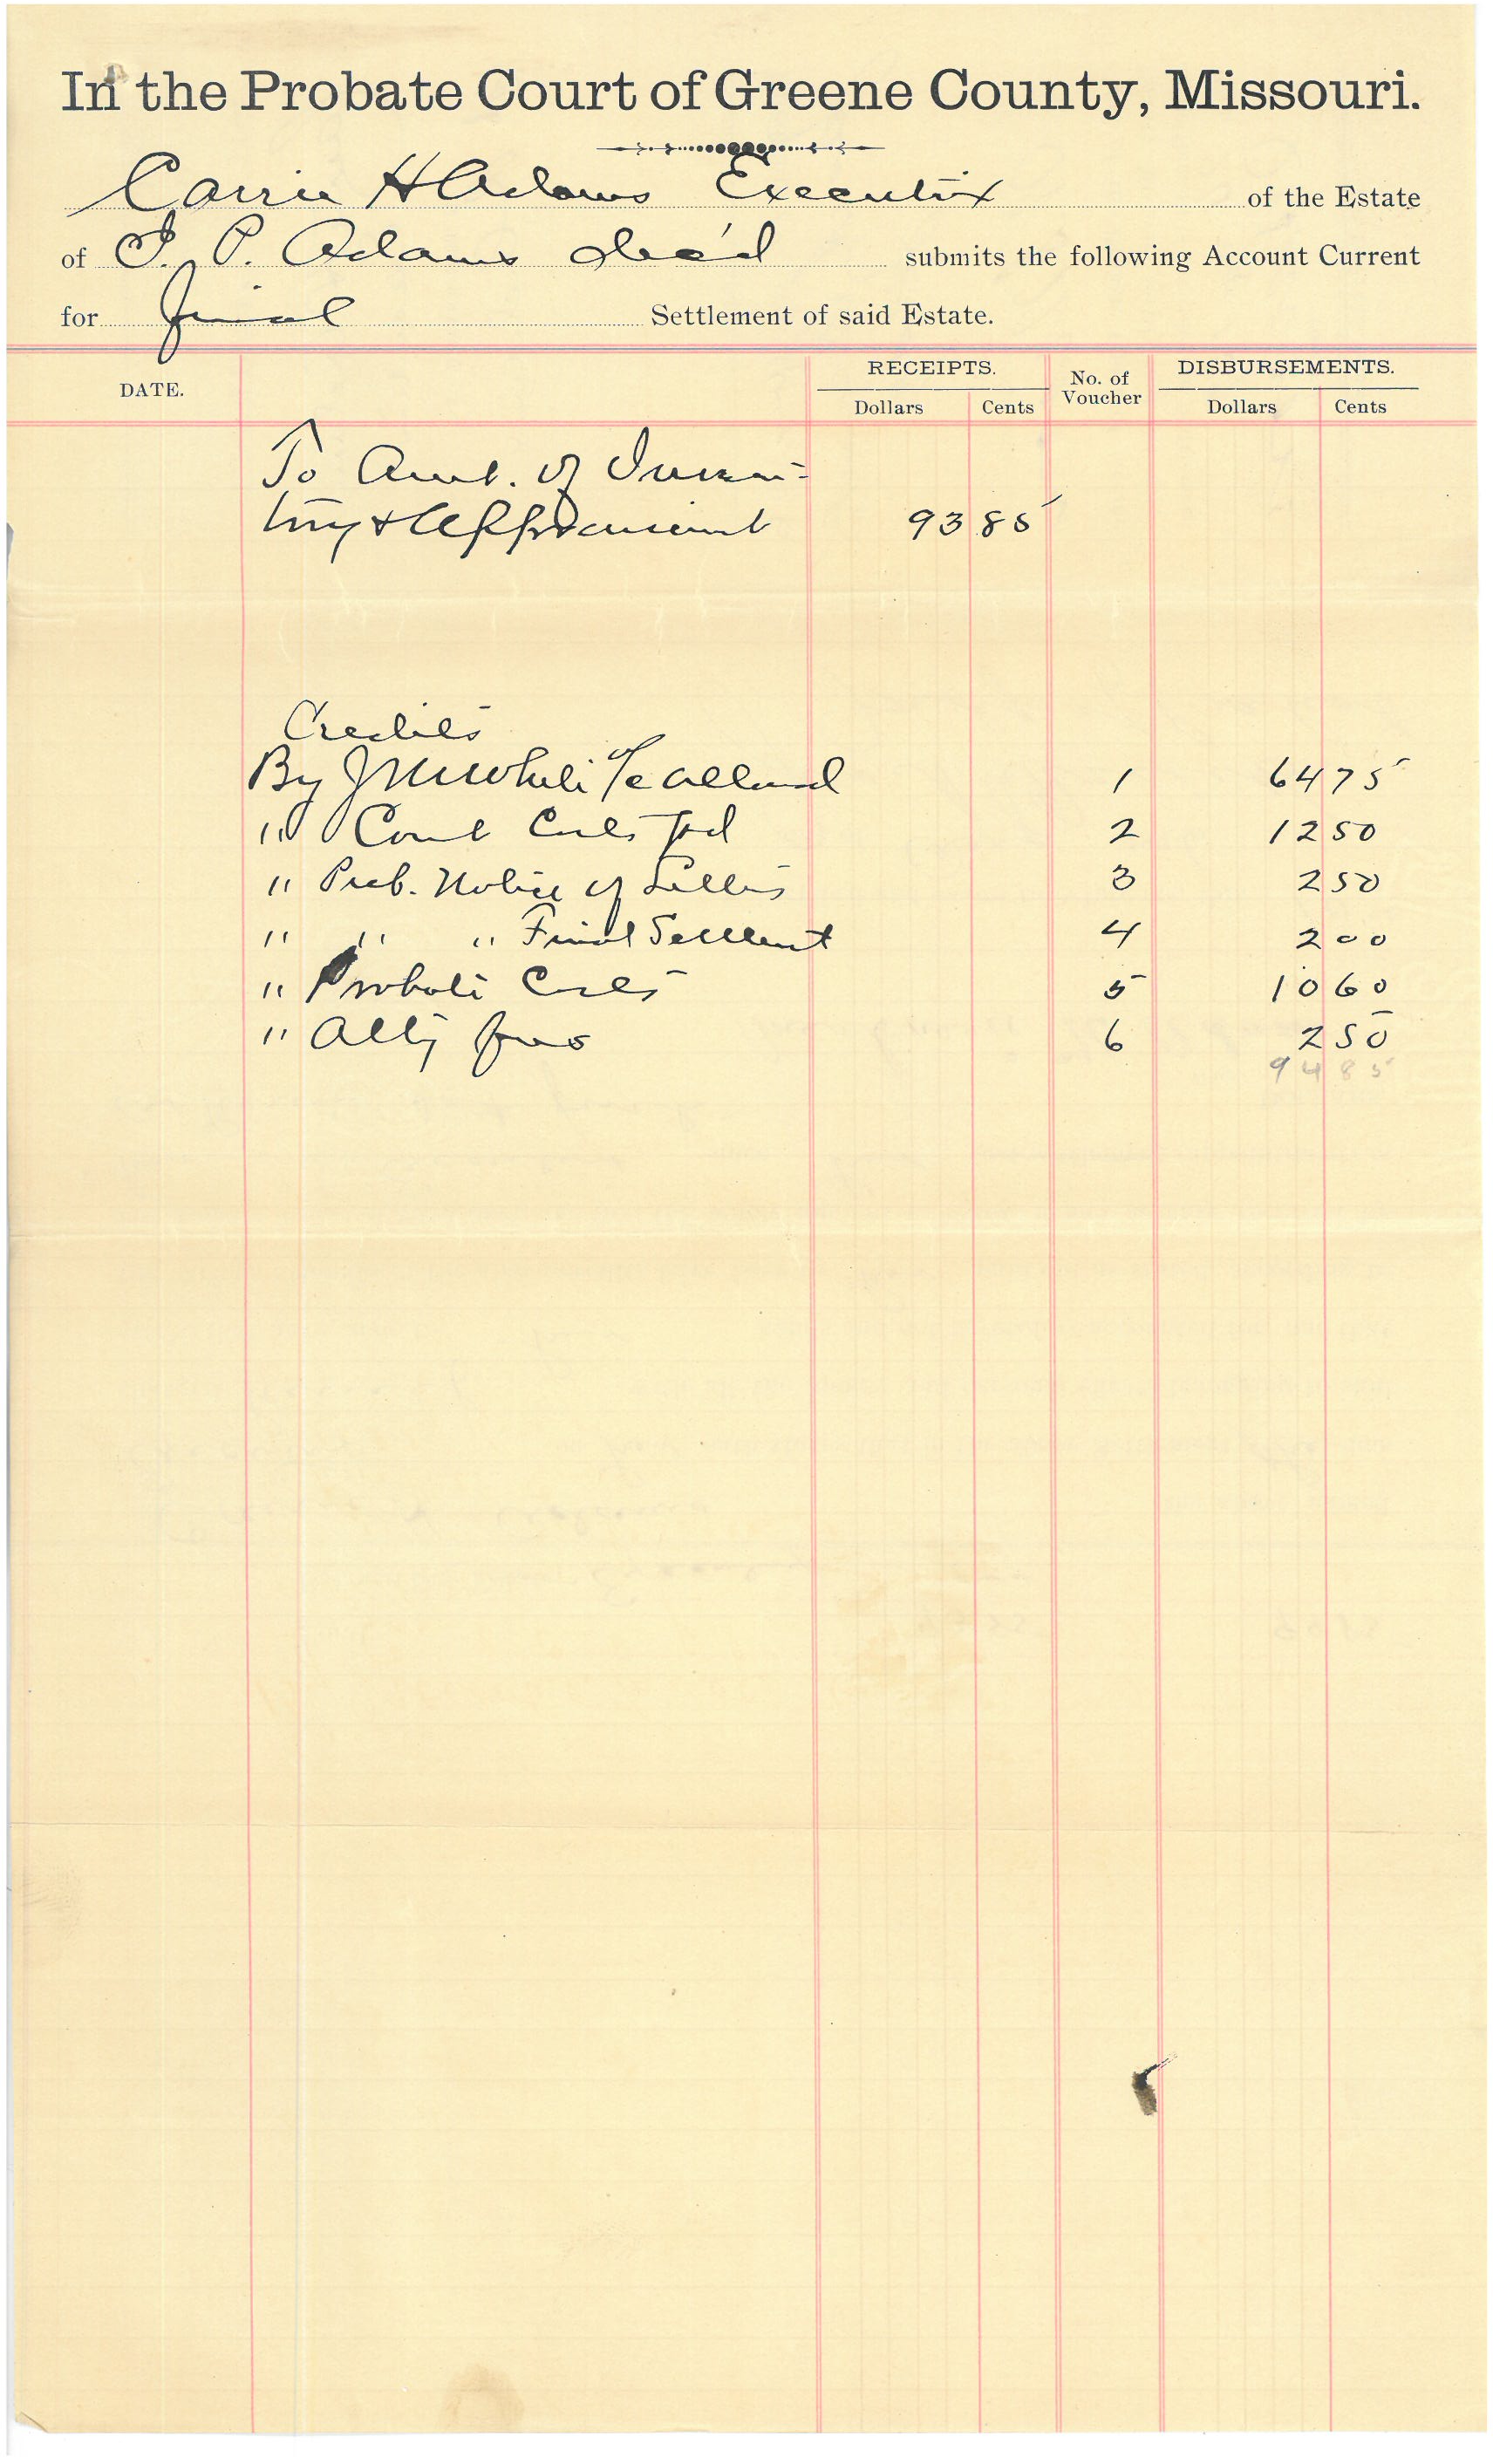 In the Probate Court of Greene County, Missouri.
Carrie H Adams Executrix of the Estate
of I. P. Adams dec'd submits the following Account Current
for final Settlement of said Estate.
DATE. RECEIPTS. No. of Voucher DISBURSEMENTS.
Dollars Cents Dollars Cents
To Amt. of Inven-
tory & Appraisement 93 85
Credits
By J M White a/c allowed 1 64 75
" Court Costs pd 2 12 50
" Pub. Notice of Letters 3 2 50
" " " Final Settlement 4 2 00
" Probate Costs 5 10 60
" Atty fees 6 2 50
94 85